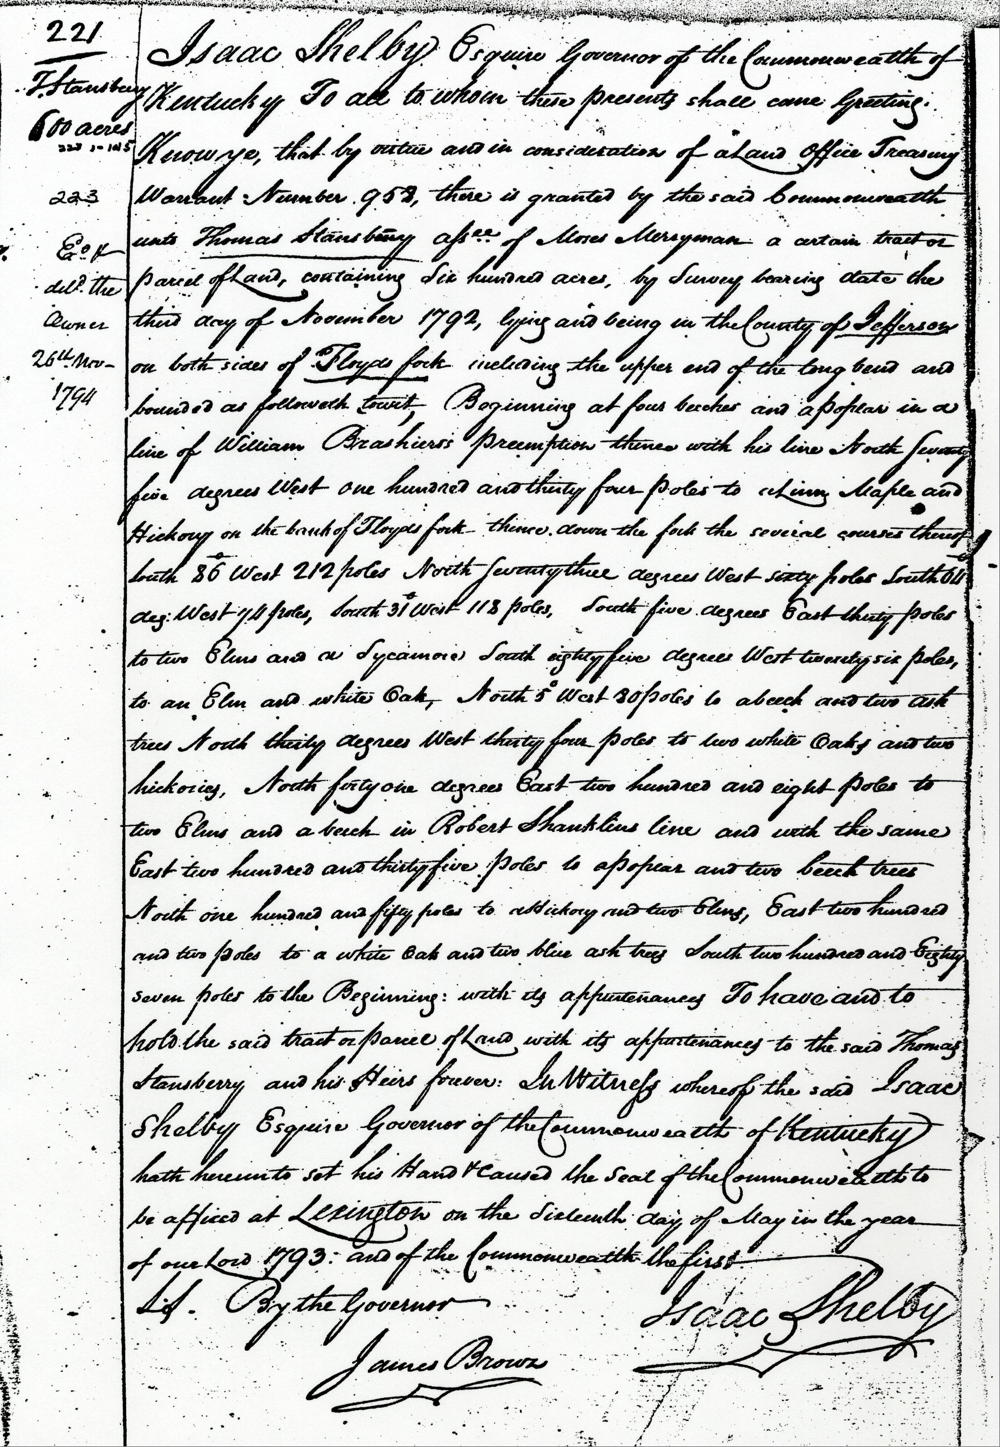 221
T. Stansbury
600 acres
223
Exd &
deld. the
Owner
26th Nov-
1794
Isaac Shelby Esquire Governor of the Commonwealth of
Kentucky To all to whom these presents shall come Greeting:
Know ye, that by virtue and in consideration of a Land Office Treasury
Warrant Number 952, there is granted by the said Commonwealth
unto Thomas Stansberry assee. of Moses Merryman a certain tract or
parcel of Land, containing Six hundred acres, by Survey bearing date the
third day of November 1792, lying and being in the County of Jefferson
on both sides of Floyds fork including the upper end of the long bend and
bounded as followeth towit, Beginning at four beeches and a poplar in a
line of William Brashiers's preemption thence with his line North Seventy
five degrees West one hundred and thirty four poles to a Linn Maple and
Hickory on the bank of Floyds fork thence down the fork the several courses thereof
South 86° West 212 poles North Seventy three degrees West sixty poles South 64
deg. West 74 poles, South 31° West 118 poles, South five degrees East thirty poles
to two Elms and a Sycamore South eighty five degrees West twenty six poles,
to an Elm and white Oak, North 5° West 80 poles to a beech and two ash
trees North thirty degrees West thirty four poles to two white Oaks and two
hickories, North forty one degrees East two hundred and eight poles to
two Elms and a beech in Robert Shanklins line and with the same
East two hundred and thirty five poles to a poplar and two beech trees
North one hundred and fifty poles to a Hickory and two Elms, East two hundred
and two poles to a white Oak and two blue ash trees South two hundred and Eighty
seven poles to the Beginning: with its appurtenances To have and to
hold the said tract or parcel of Land with its appurtenances to the said Thomas
Stansberry and his Heirs forever: In Witness whereof the said Isaac
Shelby Esquire Governor of the Commonwealth of Kentucky
hath hereunto set his Hand & Caused the Seal of the Commonwealth to
be affixed at Lexington on the Sixteenth day of May in the year
of our Lord 1793: and of the Commonwealth the first
L.S. By the Governor
Isaac Shelby
James Brown